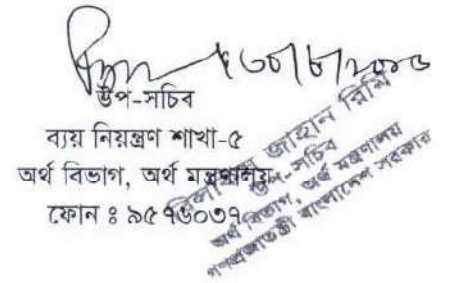 উপ-সচিব
ব্যয় নিয়ন্ত্রণ শাখা-৫
অর্থ বিভাগ, অর্থ মন্ত্রণালয়
ফোন ঃ ৯৫৭৬০৩৭
জাহান রিমি
উপ-সচিব
অর্থ বিভাগ, অর্থ মন্ত্রণালয়
গণপ্রজাতন্ত্রী বাংলাদেশ সরকার